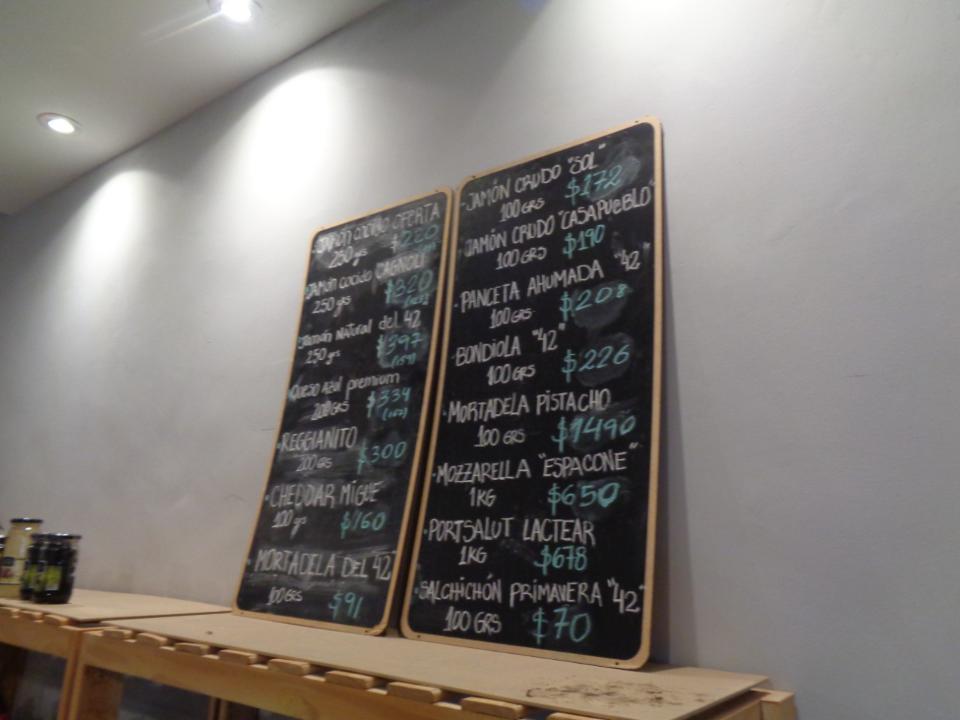 JAMÓN COCIDO OFERTA
250 grs $220
JAMÓN COCIDO CAGNOLI
250 grs $320
JAMÓN NATURAL del 42
250 grs $397
(159)
QUESO AZUL premium
200 GRS $334
(167)
REGGIANITO
200 GRS $300
CHEDDAR MIGUE
100 grs $160
MORTADELA DEL "42"
100 GRS $91
JAMÓN CRUDO "SOL"
100 GRS $172
JAMÓN CRUDO "CASAPUEBLO"
100 GRS $190
PANCETA AHUMADA "42"
100 GRS $208
BONDIOLA "42"
100 GRS $226
MORTADELA PISTACHO
100 GRS $1490
MOZZARELLA "ESPACONE"
1 KG $650
PORTSALUT LACTEAR
1 KG $678
SALCHICHÓN PRIMAVERA "42"
100 GRS $70